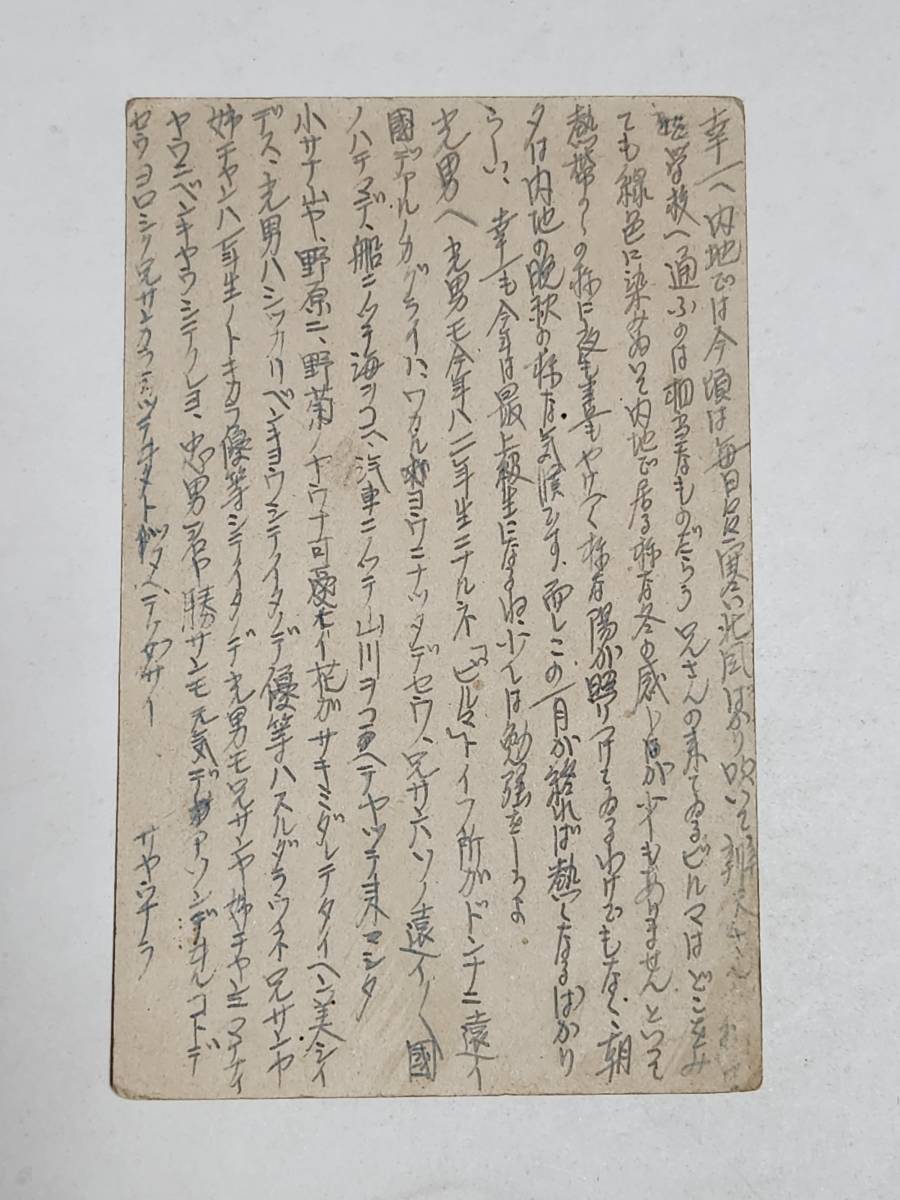 幸一へ内地では今頃は毎日々々寒い北風ばかり吹いて
学校へ通ふのは相当なものだらう 兄さんの来てゐるビルマはどこをみ
ても緑色に染みゐいて内地で居る様な冬の感じが少しもありません といって
熱帯々々の様に夜も昼もやけつく様な陽が照りつけてゐるわけでもなく、朝
夕は内地の晩秋の様な気候です、而しこの一月が終れば熱くなるばかり
らしい、幸一も今年は最上級生になるね 少しは勉強をしろよ
光男へ 光男モ今年ハ二年生ニナルネ「ビルマ」トイフ所ガドンナニ遠イ
國デアルノカグライハ、ワカルヨウニナッタデセウ、兄サンハソノ遠イ〱國
ノハテマデ、船ニノッテ海ヲコヘ、汽車ニノッテ山川ヲコヘテヤッテ来マシタ
小サナ山ヤ、野原ニ、野菊ノヤウナ可愛イ花ガサキミダレテタイヘン美シイ
デス、光男ハシッカリベンキヨウシテイタノデ優等ハスルダラウネ 兄サンヤ
姉チャンハ一年生ノトキカラ優等シテイタノデ光男モ兄サンヤ姉チャンニマケナイ
ヤウニベンキヤウシテクレヨ、忠男君ヤ勝サンモ元気デアソンデヰルコトデ
セウ ヨロシク兄サンカラ云ッテキタトツタヘテ下サイ サヤウナラ